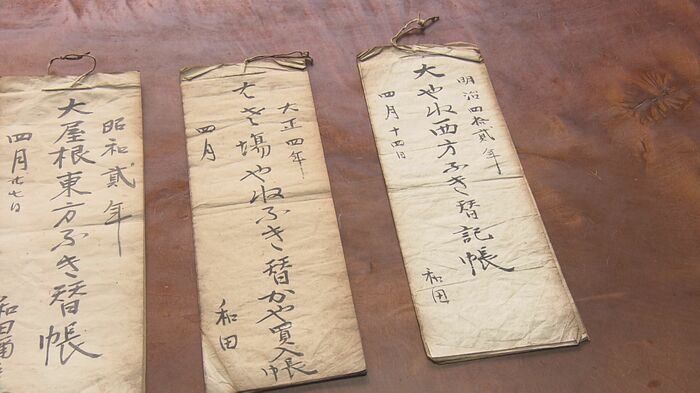 明治四拾貳年
大や祢西方ふき替記帳
四月十四日
和田
大正四年
場や祢ふき替かや買入帳
四月
和田
昭和貳年
大屋根東方ふき替帳
四月廿七日
和田